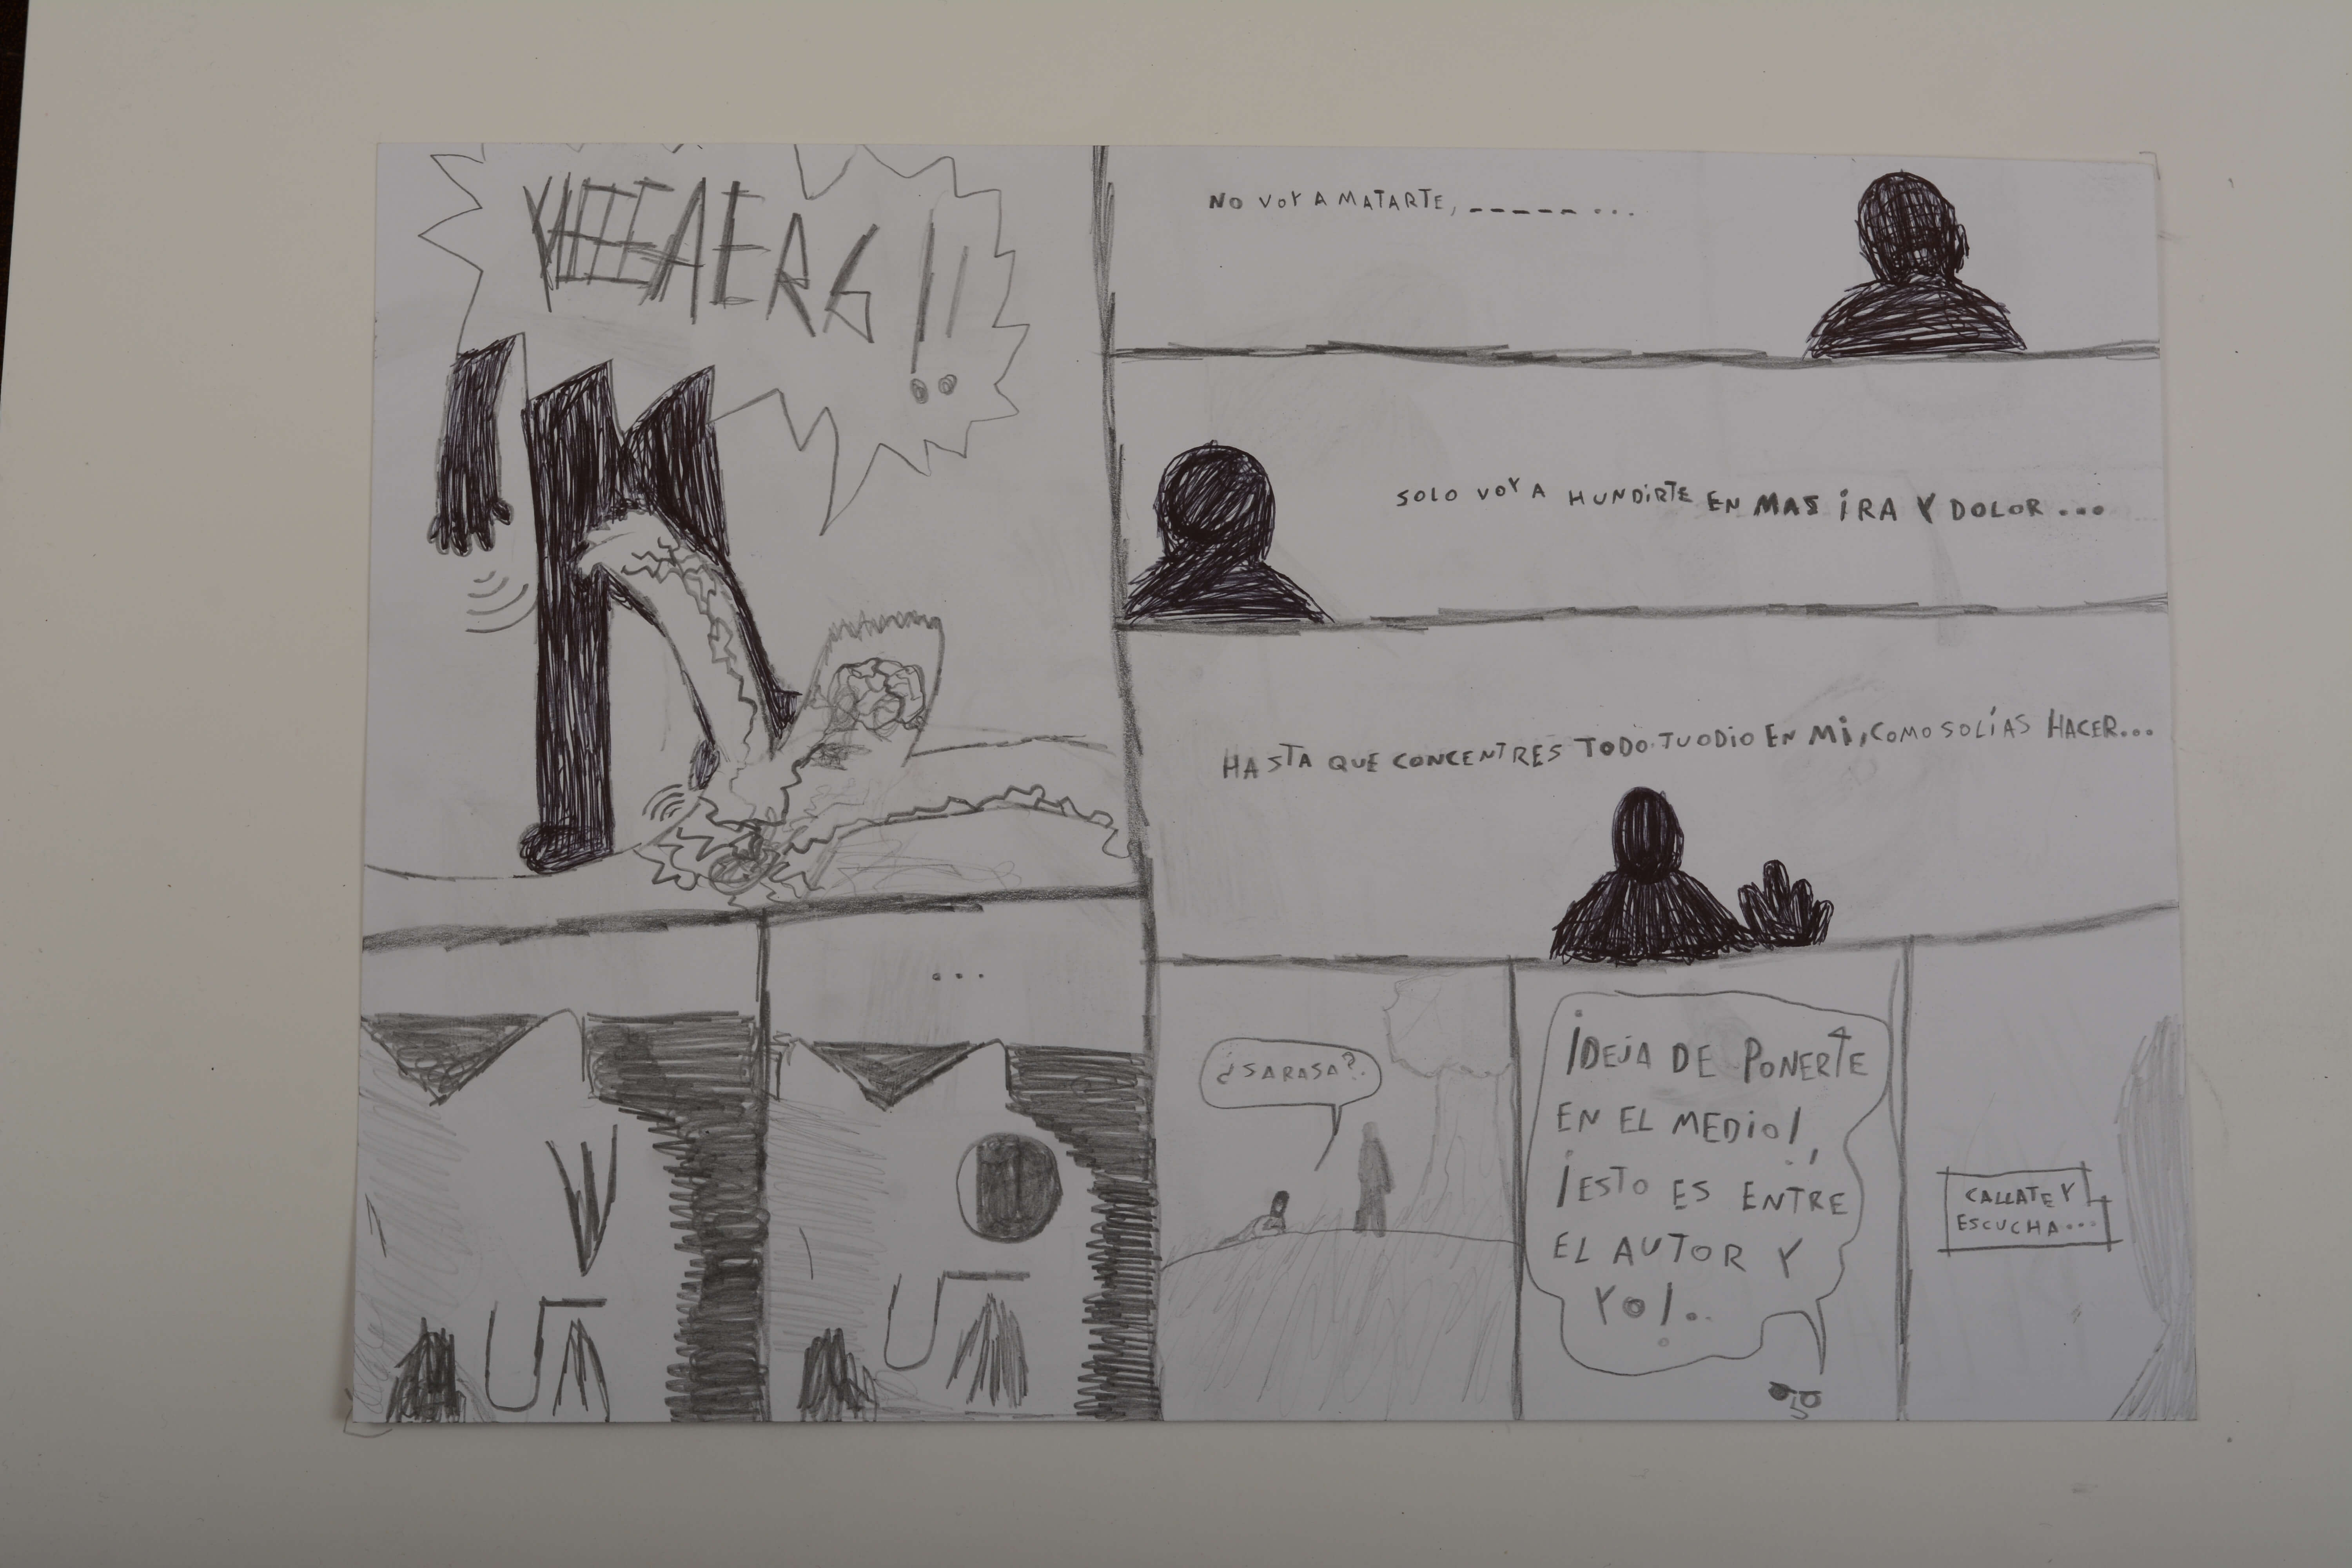 NO VOY A MATARTE, ------...
SOLO VOY A HUNDIRTE EN MAS IRA Y DOLOR...
HASTA QUE CONCENTRES TODO TU ODIO EN MI, COMO SOLÍAS HACER...
...
¿SARASA?
¡DEJA DE PONERTE
EN EL MEDIO!,
¡ESTO ES ENTRE
EL AUTOR Y
YO!..
CALLATE Y
ESCUCHA...